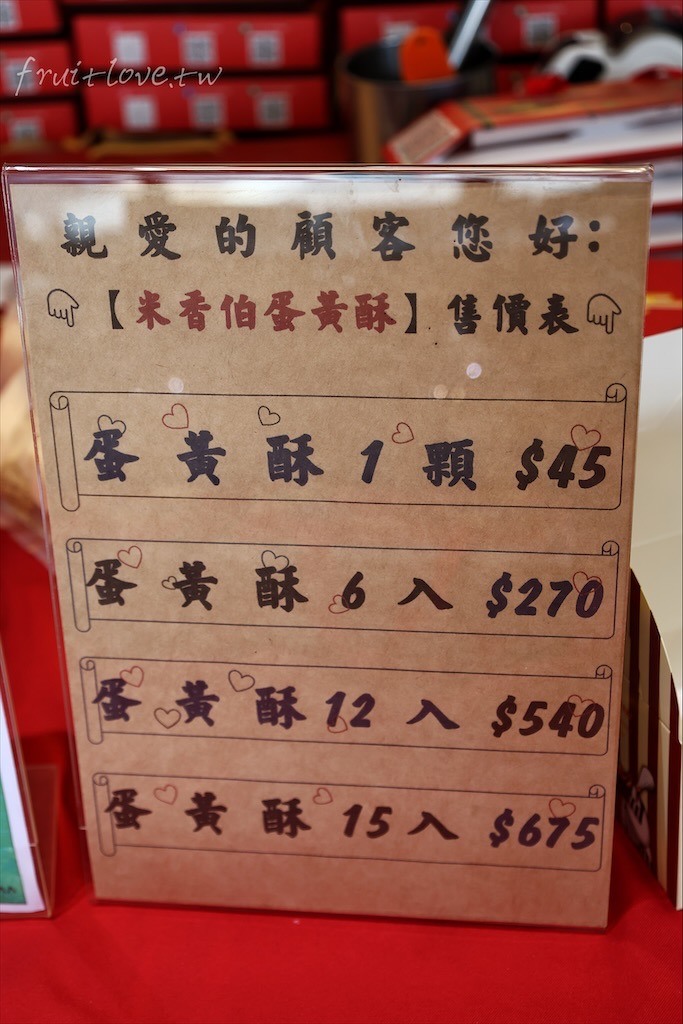 fruitlove.tw
親愛的顧客您好:
【米香伯蛋黃酥】售價表
蛋黃酥1顆 $45
蛋黃酥6入 $270
蛋黃酥12入 $540
蛋黃酥15入 $675